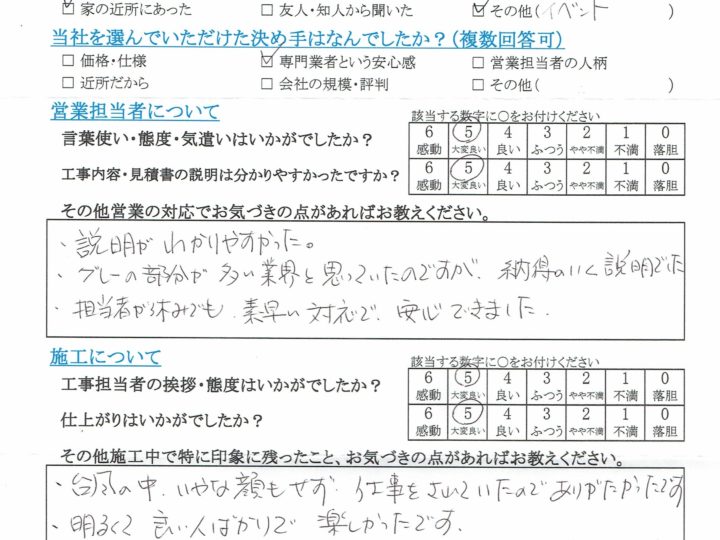 ☑ 家の近所にあった □ 友人・知人から聞いた ☑ その他(イベント )
当社を選んでいただけた決め手はなんでしたか？(複数回答可)
□ 価格・仕様 ☑ 専門業者という安心感 □ 営業担当者の人柄
□ 近所だから □ 会社の規模・評判 □ その他( )
営業担当者について 該当する数字に○をお付けください
言葉使い・態度・気遣いはいかがでしたか？ 6 感動 5 大変良い 4 良い 3 ふつう 2 やや不満 1 不満 0 落胆
工事内容・見積書の説明は分かりやすかったですか？ 6 感動 5 大変良い 4 良い 3 ふつう 2 やや不満 1 不満 0 落胆
その他営業の対応でお気づきの点があればお教えください。
・説明がわかりやすかった。
・グレーの部分が多い業界と思っていたのですが、納得のいく説明でした
・担当者が休みでも、素早い対応で、安心できました.
施工について 該当する数字に○をお付けください
工事担当者の挨拶・態度はいかがでしたか？ 6 感動 5 大変良い 4 良い 3 ふつう 2 やや不満 1 不満 0 落胆
仕上がりはいかがでしたか？ 6 感動 5 大変良い 4 良い 3 ふつう 2 やや不満 1 不満 0 落胆
その他施工中で特に印象に残ったこと、お気づきの点があればお教えください。
・台風の中、いやな顔もせず、仕事をされていたのでありがたかったです
・明るくて良い人ばかりで楽しかったです.